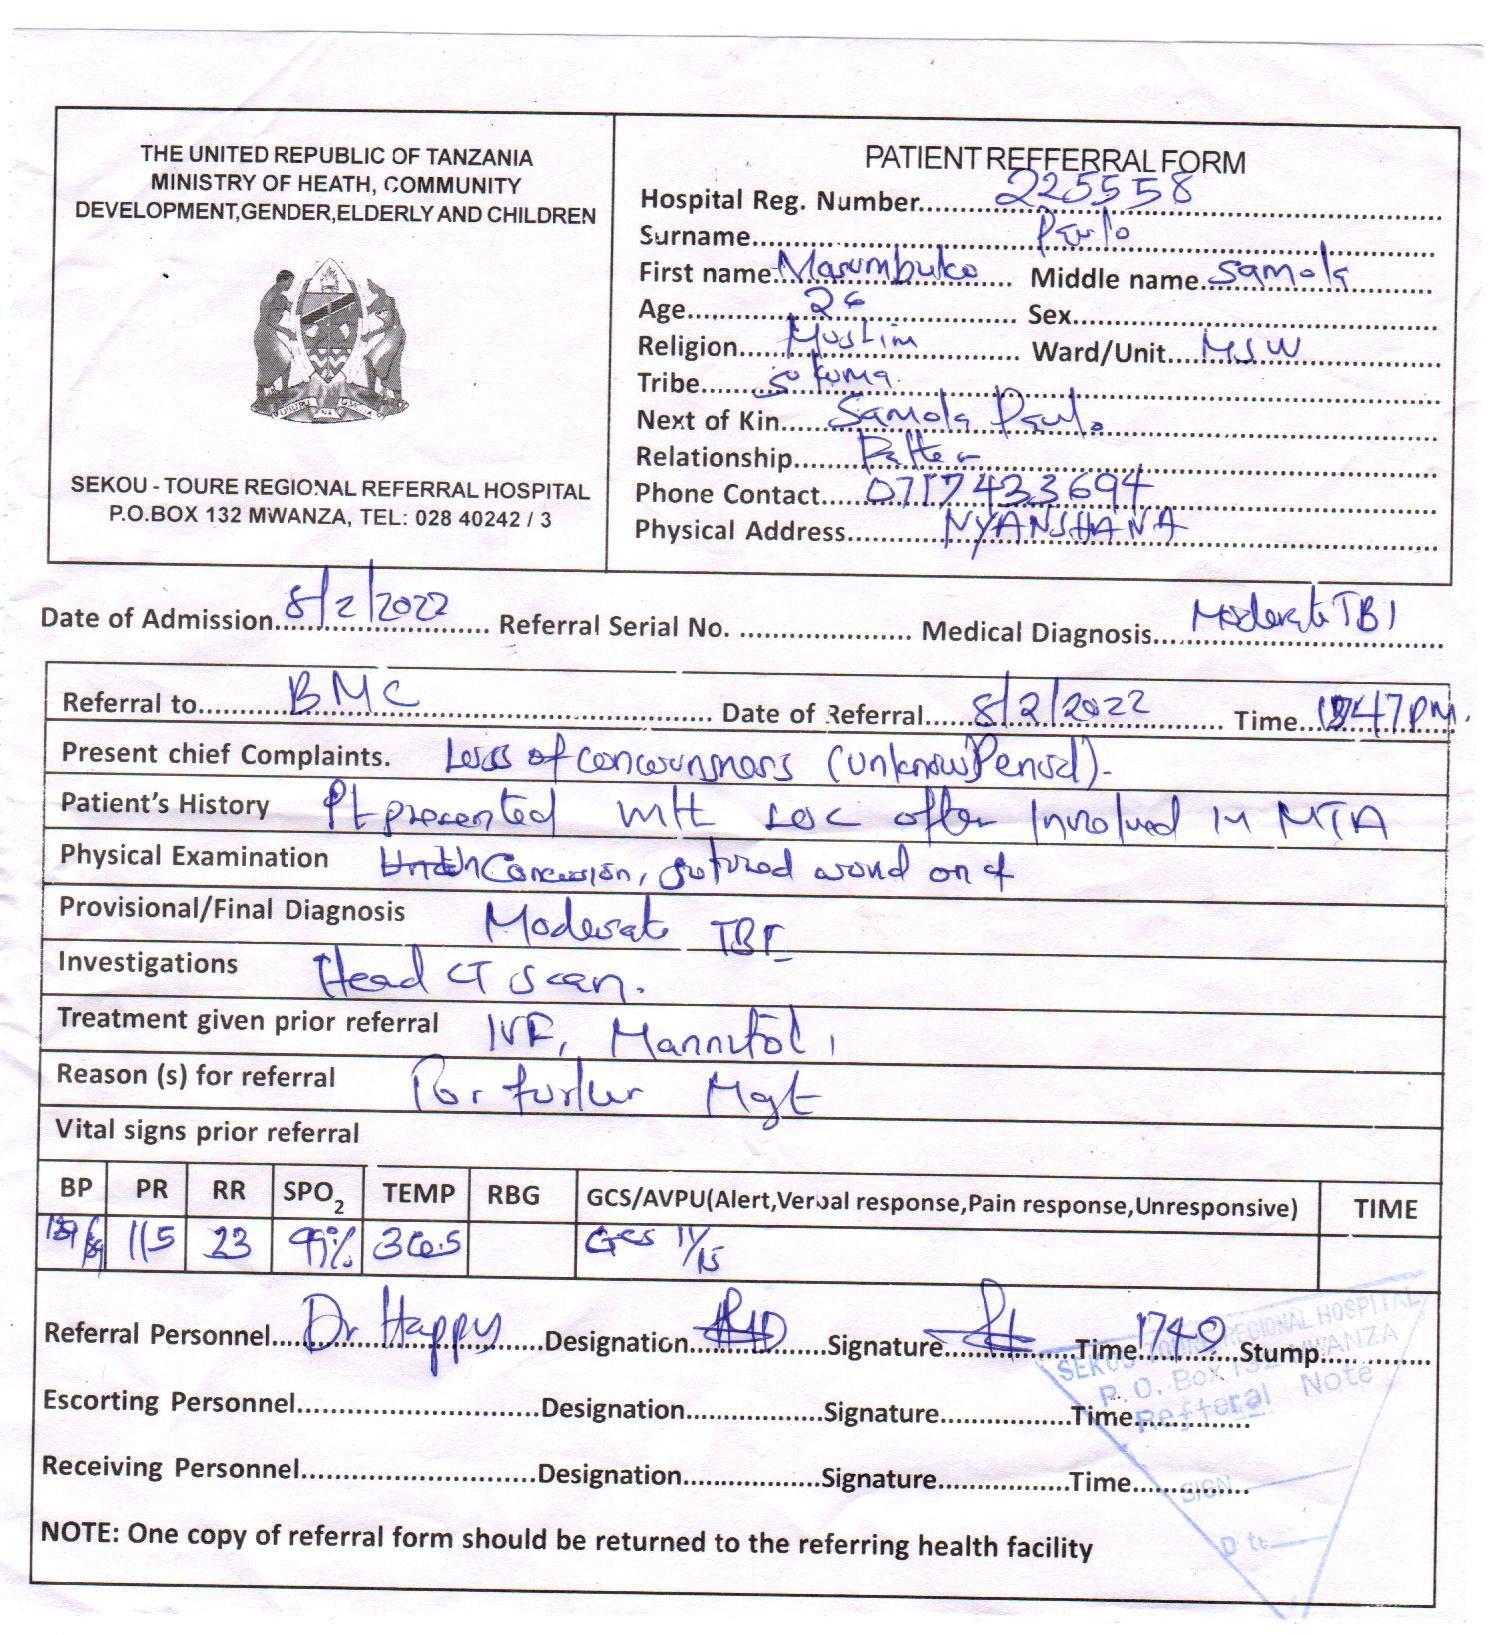 THE UNITED REPUBLIC OF TANZANIA
MINISTRY OF HEATH, COMMUNITY
DEVELOPMENT,GENDER,ELDERLY AND CHILDREN
SEKOU - TOURE REGIONAL REFERRAL HOSPITAL
P.O.BOX 132 MWANZA, TEL: 028 40242 / 3
PATIENT REFFERRAL FORM
Hospital Reg. Number 225558
Surname Paulo
First name Masumbuko Middle name Samola
Age 26 Sex
Religion Muslim Ward/Unit MSW
Tribe Sukuma
Next of Kin Samola Paulo
Relationship
Phone Contact 0717433694
Physical Address NYANSHANA
Date of Admission 8/2/2022 Referral Serial No. Medical Diagnosis Moderate TBI
Referral to BMC Date of Referral 8/2/2022 Time 47pm.
Present chief Complaints. Loss of (unknow Period).
Patient's History Pt presented with LOC after Involved in MTA
Physical Examination sutured wound on
Provisional/Final Diagnosis Moderate TBI
Investigations Head CT scan.
Treatment given prior referral IVF, Mannitol,
Reason (s) for referral For further Mgt
Vital signs prior referral
BP PR RR SPO2 TEMP RBG GCS/AVPU(Alert,Verbal response,Pain response,Unresponsive) TIME
115 23 99% 36.5 GCS 11/15
Referral Personnel Dr Happy Designation Signature Time 1740 Stump
Escorting Personnel Designation Signature Time
Receiving Personnel Designation Signature Time
NOTE: One copy of referral form should be returned to the referring health facility
SEKOU TOURE REGIONAL HOSPITAL
P. O. Box 132 MWANZA
Refferal Note
SIGN